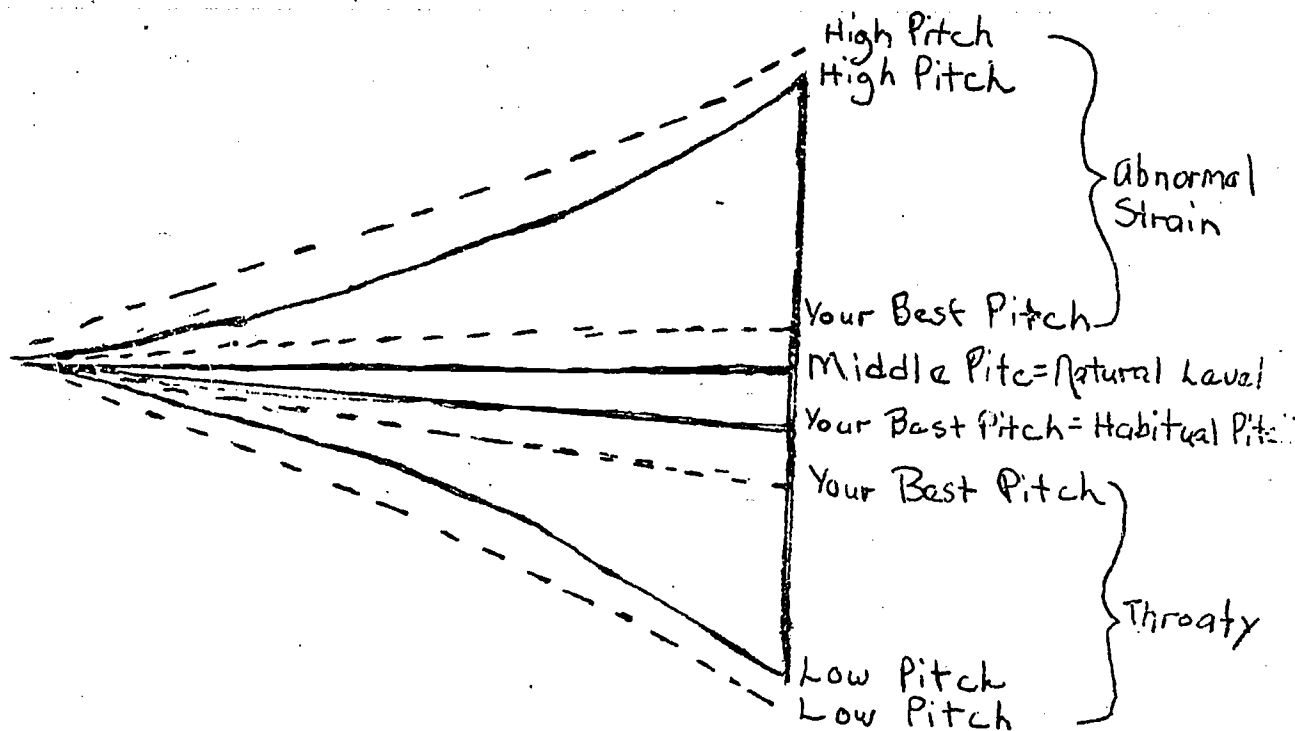 High Pitch
High Pitch
Abnormal
Strain
Your Best Pitch
Middle Pitc=Natural Level
Your Best Pitch=Habitual
Your Best Pitch
Throaty
Low Pitch
Low Pitch